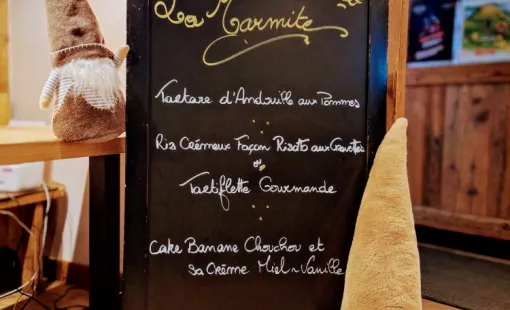 La Marmite
Tartare d'Andouille aux Pommes
Ris Crémeux Façon Risoto aux Crevettes
ou
Tartiflette Gourmande
Cake Banane Chouchou et
sa Crème Miel ~ Vanille